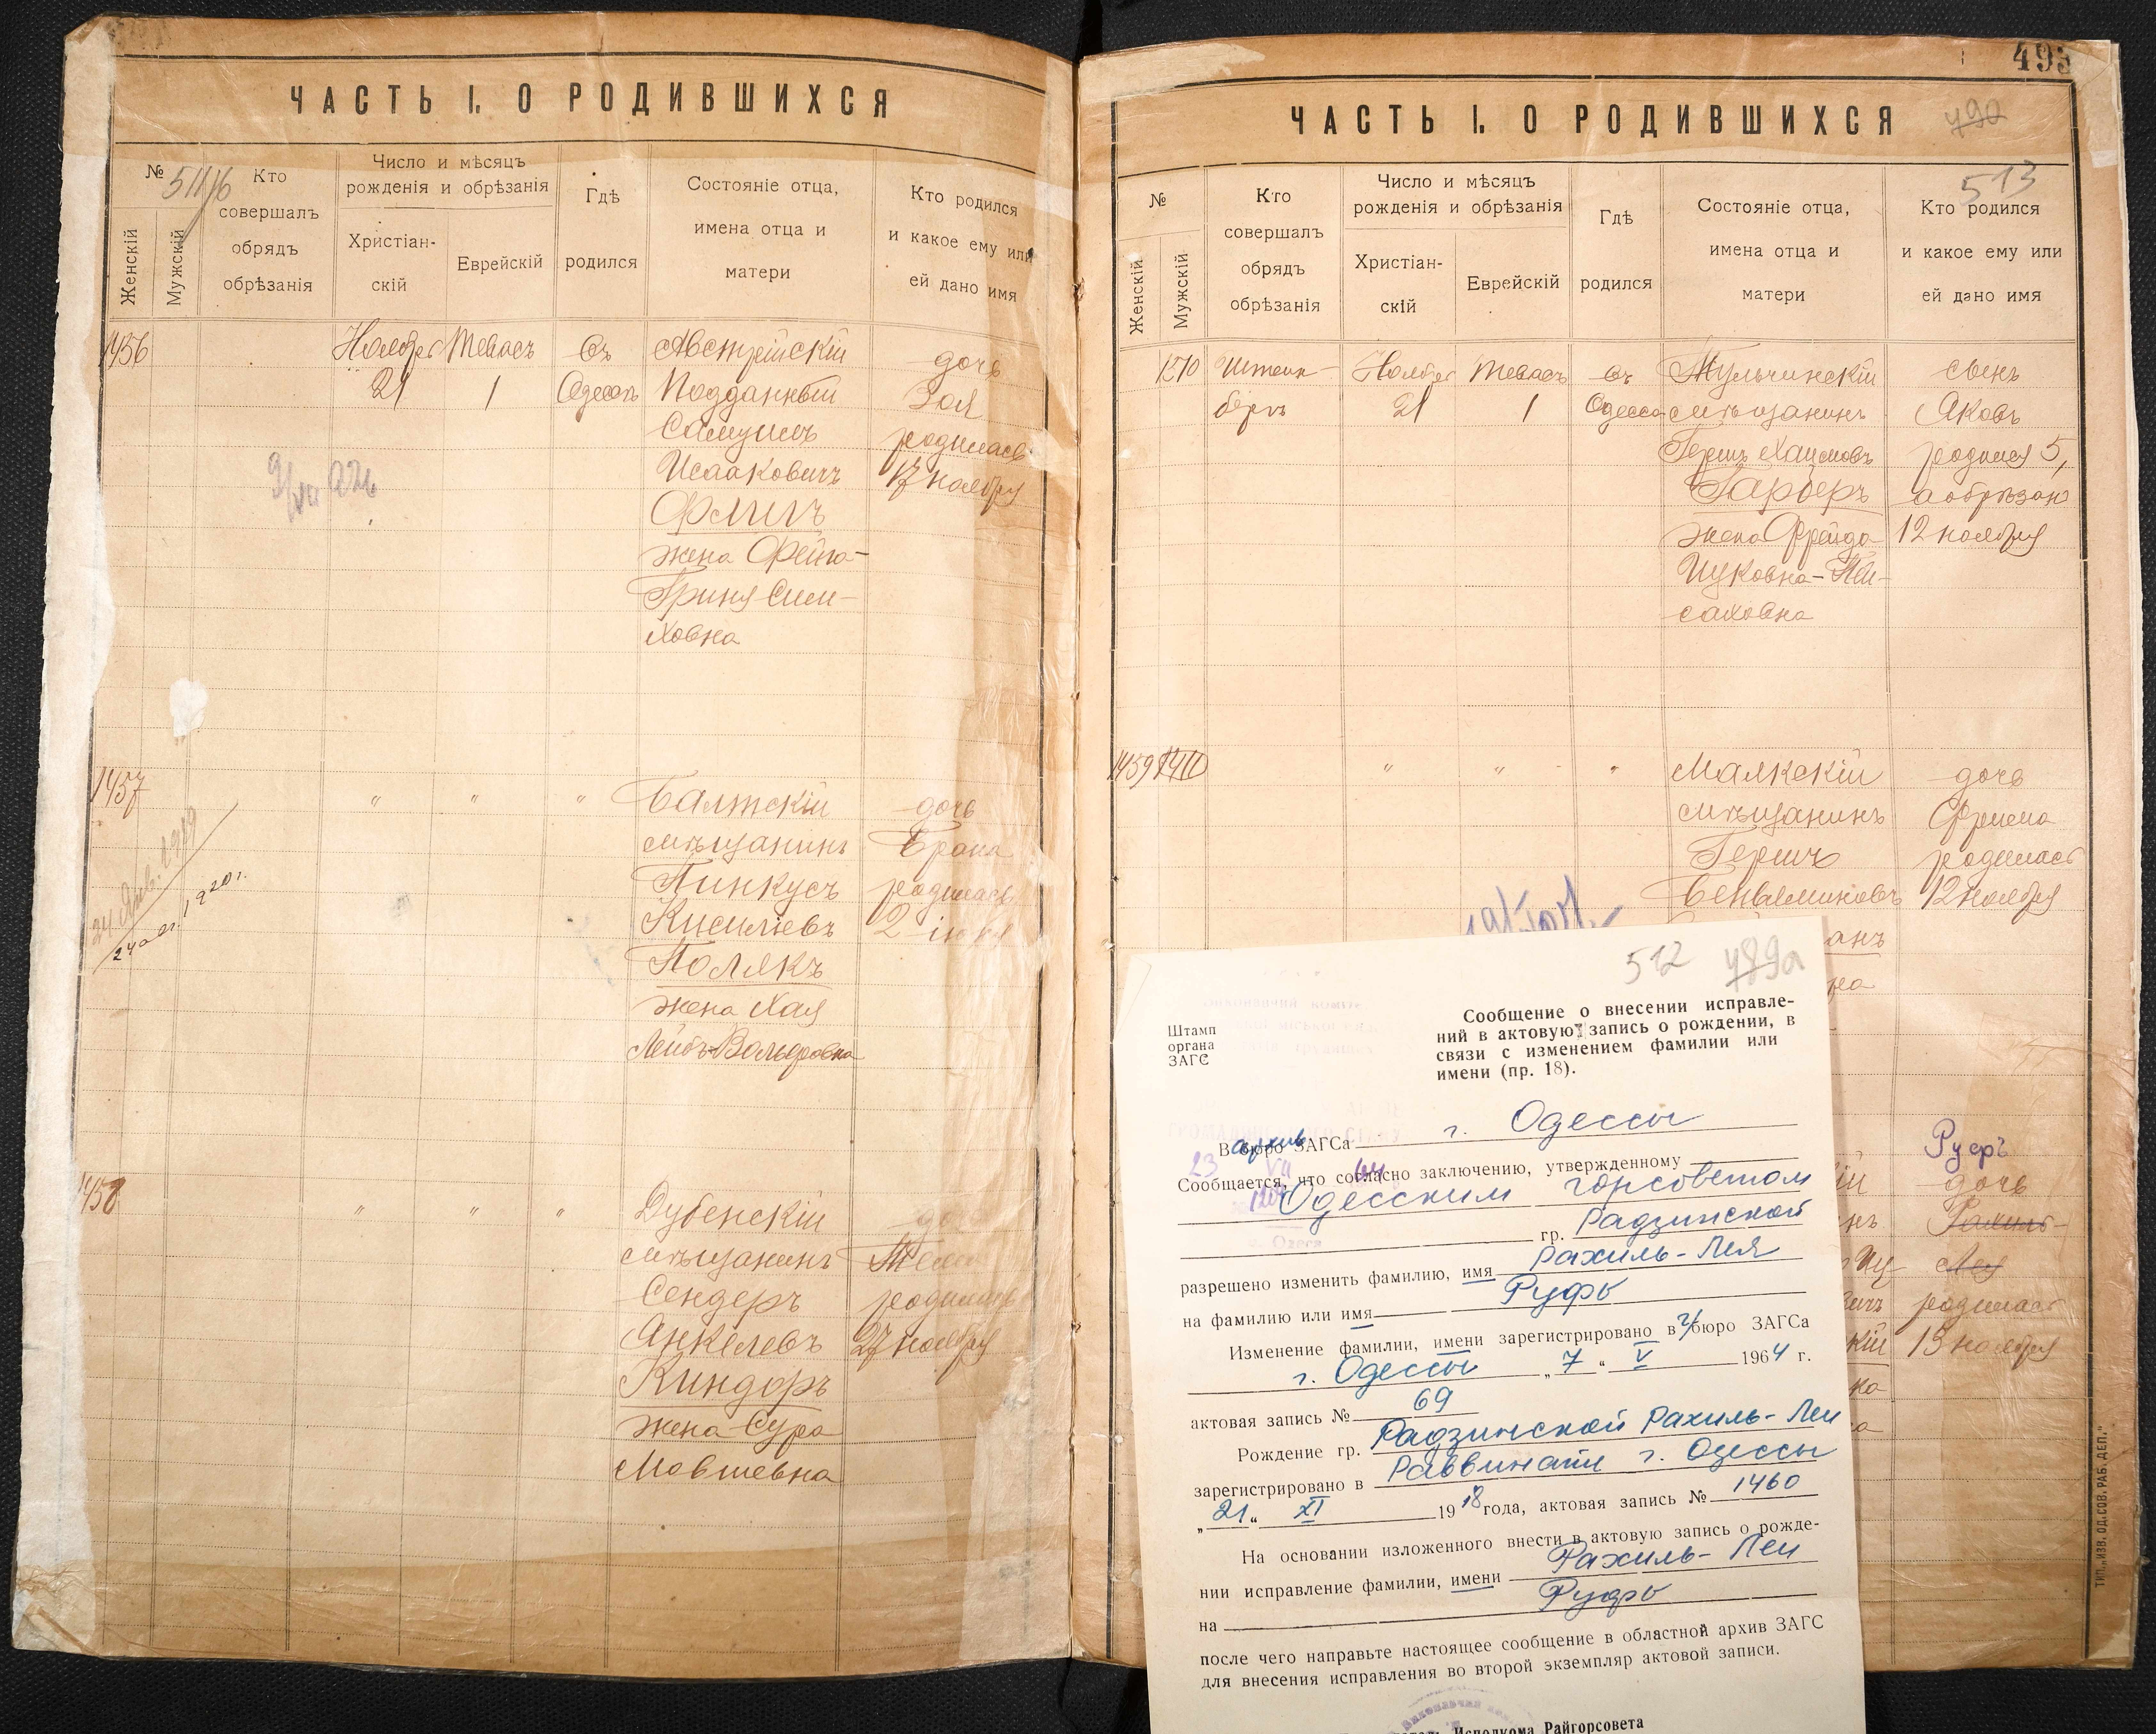 ЧАСТЬ I. О РОДИВШИХСЯ
№
Женскій
Мужскій
Кто
совершалъ
обрядъ
обрѣзанія
Число и мѣсяцъ
рожденія и обрѣзанія
Христіан-
скій
Еврейскій
Гдѣ
родился
Состояніе отца,
имена отца и
матери
Кто родился
и какое ему или
ей дано имя
1456
Ноября
21
Тевасъ
1
Въ
Одессѣ
Австрійскій
Подданный
Самуилъ
Исааковичъ
жена Фейга-
Гриня Сим-
ховна
дочь
Зоя
родилась
17 ноября
1457
" " "
Балтскій
мѣщанинъ
Пинкусъ
Кисилевъ
Полякъ
жена Хая
Лейбъ-Вольфовна
дочь
родилась
2 іюня
24 1920 г.
1458
" " "
Дубенскій
мѣщанинъ
Сендеръ
Анкелевъ
Киндоръ
жена Сура
Мовшевна
родилась
27 ноября
493
ЧАСТЬ I. О РОДИВШИХСЯ
490
513
№
Женскій
Мужскій
Кто
совершалъ
обрядъ
обрѣзанія
Число и мѣсяцъ
рожденія и обрѣзанія
Христіан-
скій
Еврейскій
Гдѣ
родился
Состояніе отца,
имена отца и
матери
Кто родился
и какое ему или
ей дано имя
1270
Штейн-
бергъ
Ноября
21
Тевасъ
1
Въ
Одессѣ
Тульчинскій
мѣщанинъ
Герш Хаимовъ
Гарберъ
жена Фрейда
Ицковна-Пей-
саховна
сынъ
Яковъ
родился 5,
а обрѣзан
12 ноября
1459
" " "
Маякскій
мѣщанинъ
Гершъ
Беньяминовъ
анъ
на
дочь
Фрима
родилась
12 ноября
Руфь
дочь
Рахиль-
Лея
родилась
13 ноября
512 489а
Штамп
органа
ЗАГС
Сообщение о внесении исправле-
ний в актовую запись о рождении, в
связи с изменением фамилии или
имени (пр. 18).
В архив бюро ЗАГСа г. Одессы
Сообщается, что согласно заключению, утвержденному
Одесским горсоветом
гр. Радзинской
разрешено изменить фамилию, имя Рахиль-Лея
на фамилию или имя Руфь
Изменение фамилии, имени зарегистрировано в г/бюро ЗАГСа
г. Одессы „ 7 “ V 1964 г.
актовая запись № 69
Рождение гр. Радзинской Рахиль-Леи
зарегистрировано в Раввинате г. Одессы
„ 21 “ XI 1918 года, актовая запись № 1460
На основании изложенного внести в актовую запись о рожде-
нии исправление фамилии, имени Рахиль-Леи
на Руфь
после чего направьте настоящее сообщение в областной архив ЗАГС
для внесения исправления во второй экземпляр актовой записи.
Исполкома Райгорсовета
ТИП. „ИЗВ. ОД. СОВ. РАБ. ДЕП.“